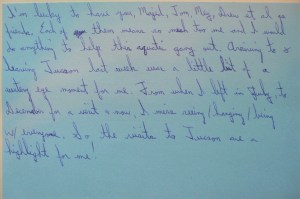 I'm lucky to have you, Majid, Jon, Meg, Drew et al as
friends. Each of them means so much to me and I would
do anything to help this aquatic gang out. Planning to
leaving Tucson last week was a little bit of a
watery eye moment for me. From when I left in July to
December for a visit & now, I miss seeing/hanging/being
w/ everyone. So the visits to Tucson are a
highlight for me!